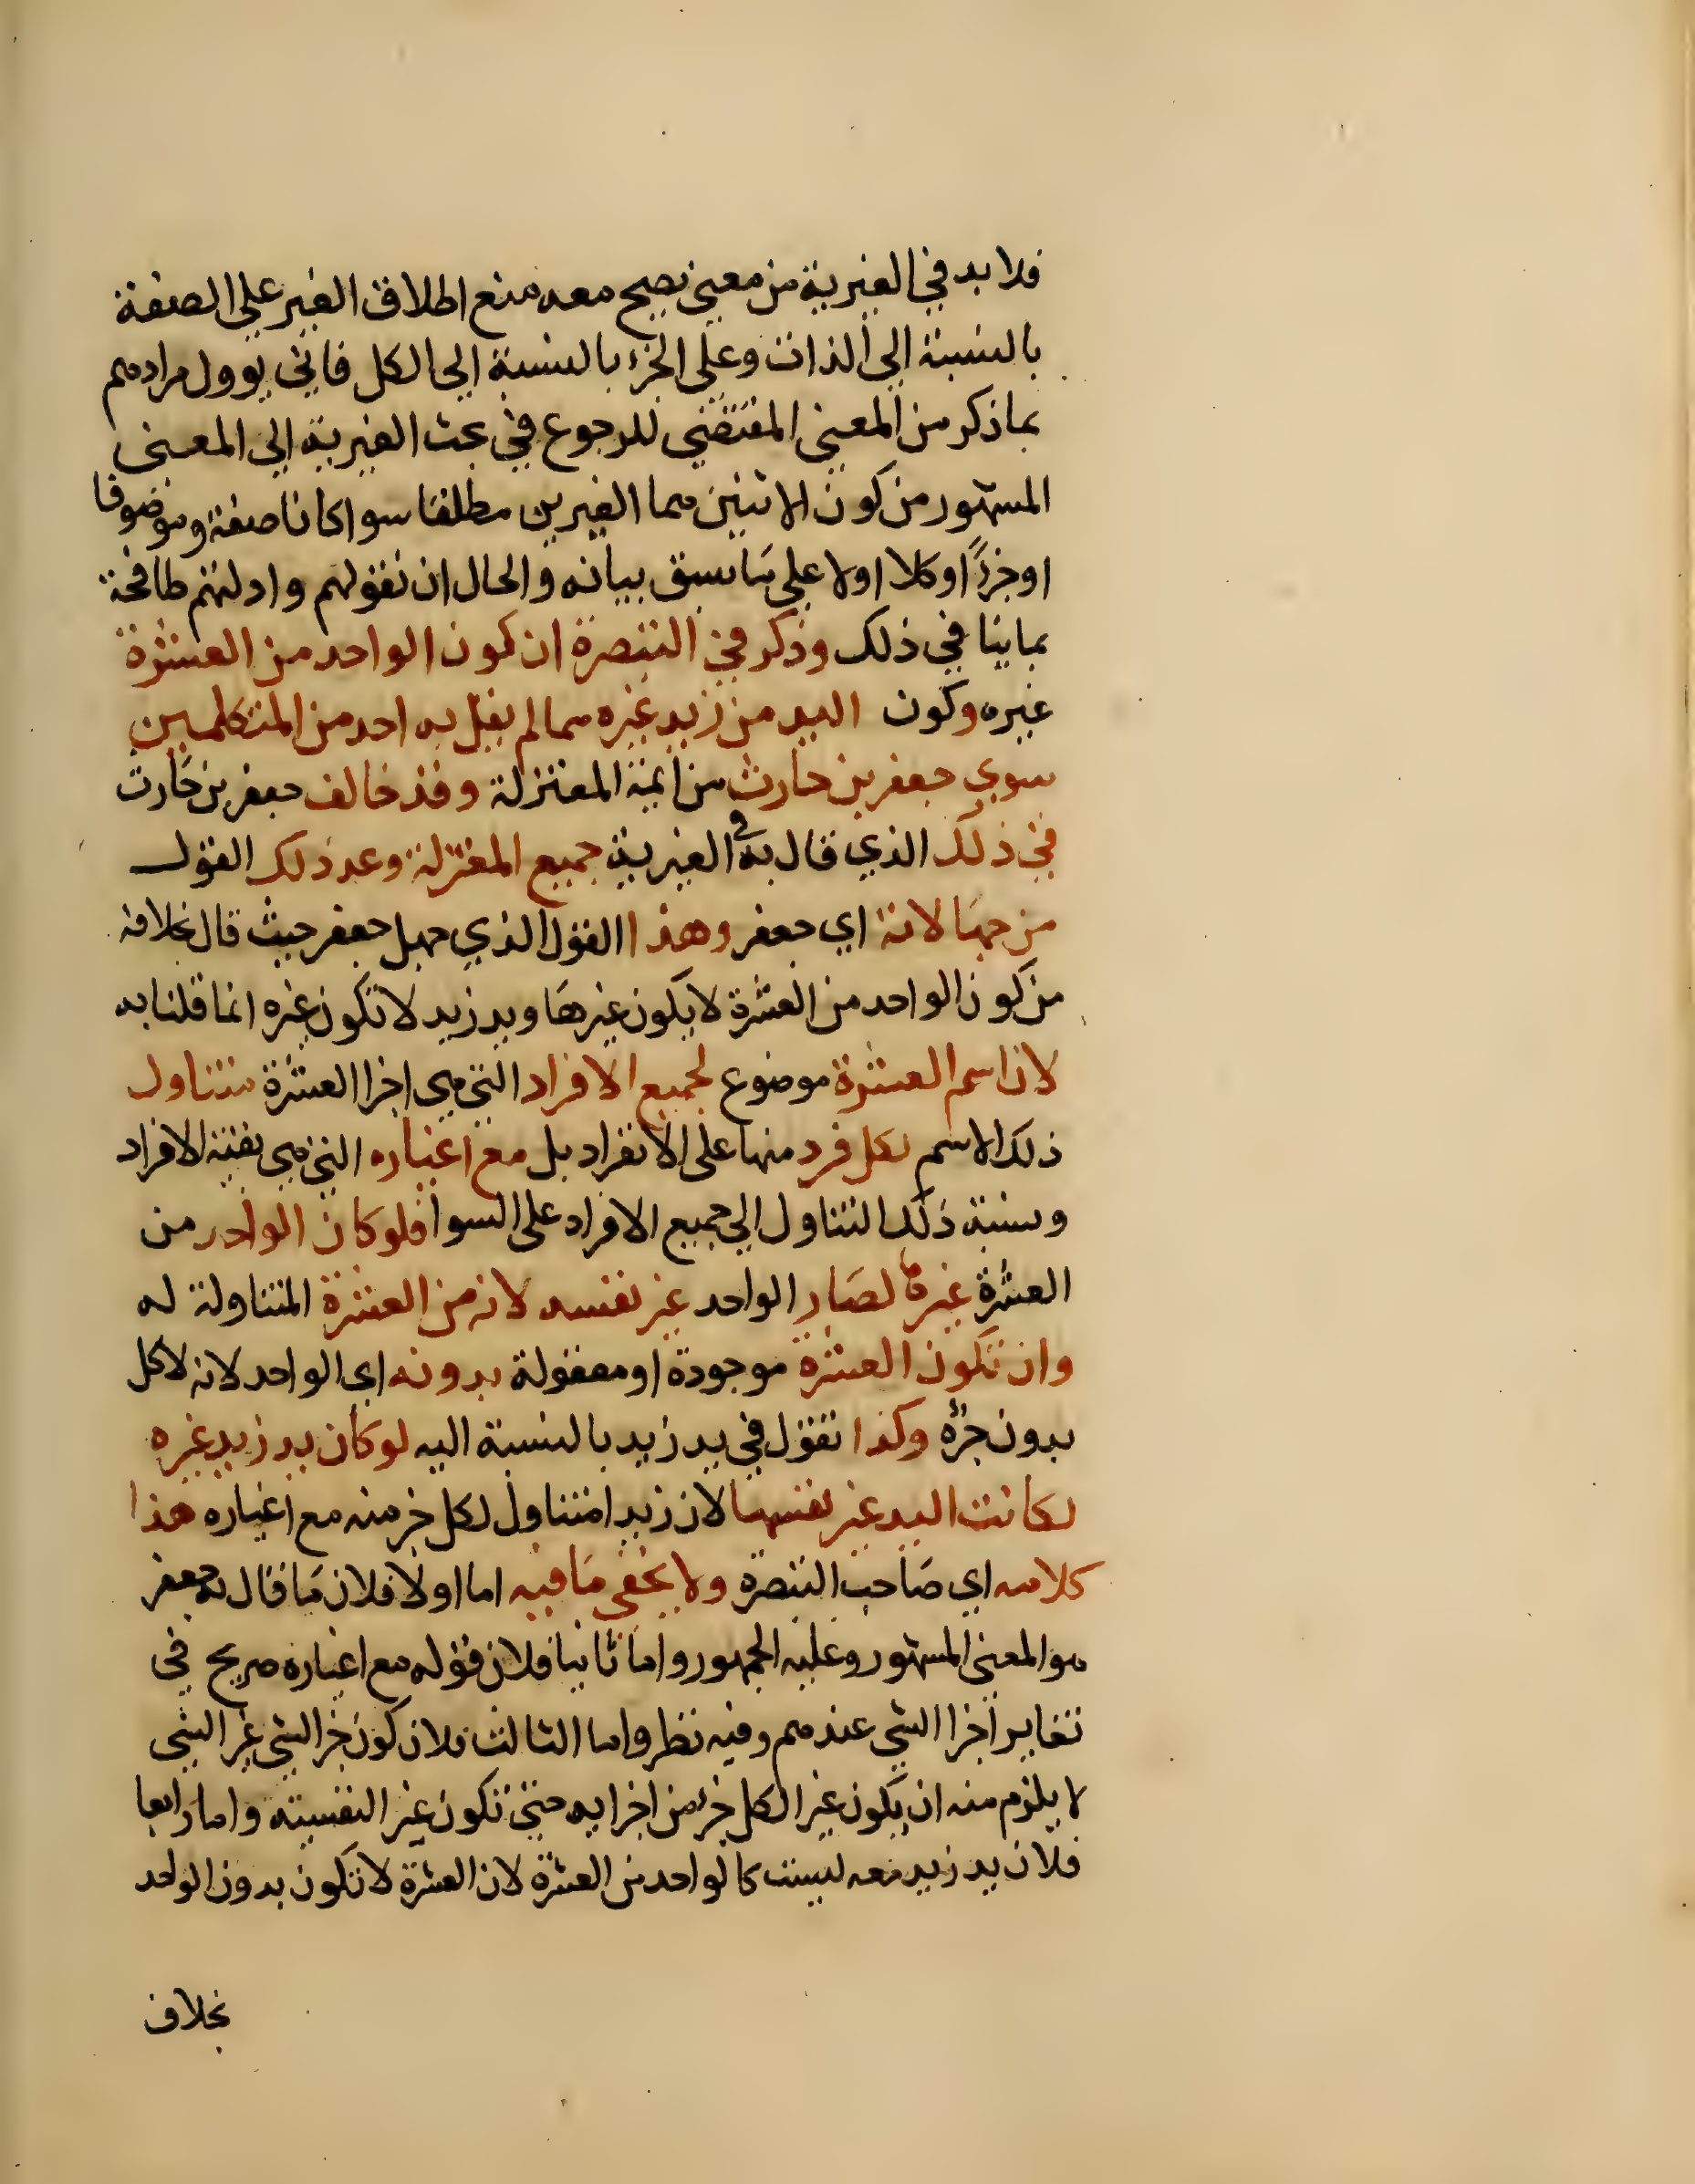 فلا بد في الغيرية من معنى يصح معه منع اطلاق الغير على الصفة
بالنسبة الى الذات وعلى الجزء بالنسبة الى الكل فاني يوول مرادهم
بما ذكر من المعنى المقتضي للرجوع في بحث الغيرية الى المعنى
المشهور من كون الاثنين هما الغيرين مطلقا سوا كانا صفة وموضوفا
او جزءً او كلا او لا على ما سبق بيانه والحال ان نقولهم وادلتهم طافحة
بما ينا في ذلك وذكر في التبصرة ان كون الواحد من العشرة
غيره وكون اليد من زيد غيره مما لم يقل به احد من المتكلمين
سوي جعفر بن حارث من ايمة المعتزلة وقد خالف جعفر بن حارث
في ذلك الذي قال به في الغيرية جميع المعتزلة وعد ذلك القول
من جهالاته اي جعفر وهذا القول الذي جهل جعفر حيث قال بخلافه
من كون الواحد من العشرة لا يكون غيرها ويد زيد لا تكون غيره انما قلنا به
لان اسم العشرة موضوع لجميع الافراد التي هي اجزا العشرة متناول
ذلك الاسم لكل فرد منها على الانفراد بل مع اغياره التي هي بقية الافراد
ونسبة ذلك التناول الى جميع الافراد على السوا فلو كان الواحد من
العشرة غيرها لصار الواحد غير نفسه لانه من العشرة المتناولة له
وان تكون العشرة موجودة او معقولة بدونه اي الواحد لانه لا كل
بدون جزئه وكذا نقول في يد زيد بالنسبة اليه لو كان يد زيد غيره
لكانت اليد غير نفسها لان زيدا متناول لكل جزء منه مع اغياره هذا
كلامه اي صاحب التبصرة ولا يخفى ما فيه اما اولا فلان ما قال به جعفر
هو المعنى المشهور وعليه الجمهور واما ثانيا فلان قوله مع اغياره صريح في
تغاير اجزا الشي عندهم وفيه نظر واما الثالث فلان كون جزا الشي غير الشي
لا يلزم منه ان يكون غير الكل جزء من اجزايه حتى تكون غير النفسية واما رابعا
فلان يد زيد معه ليست كالواحد من العشرة لان العشرة لا تكون بدون الواحد
بخلاف